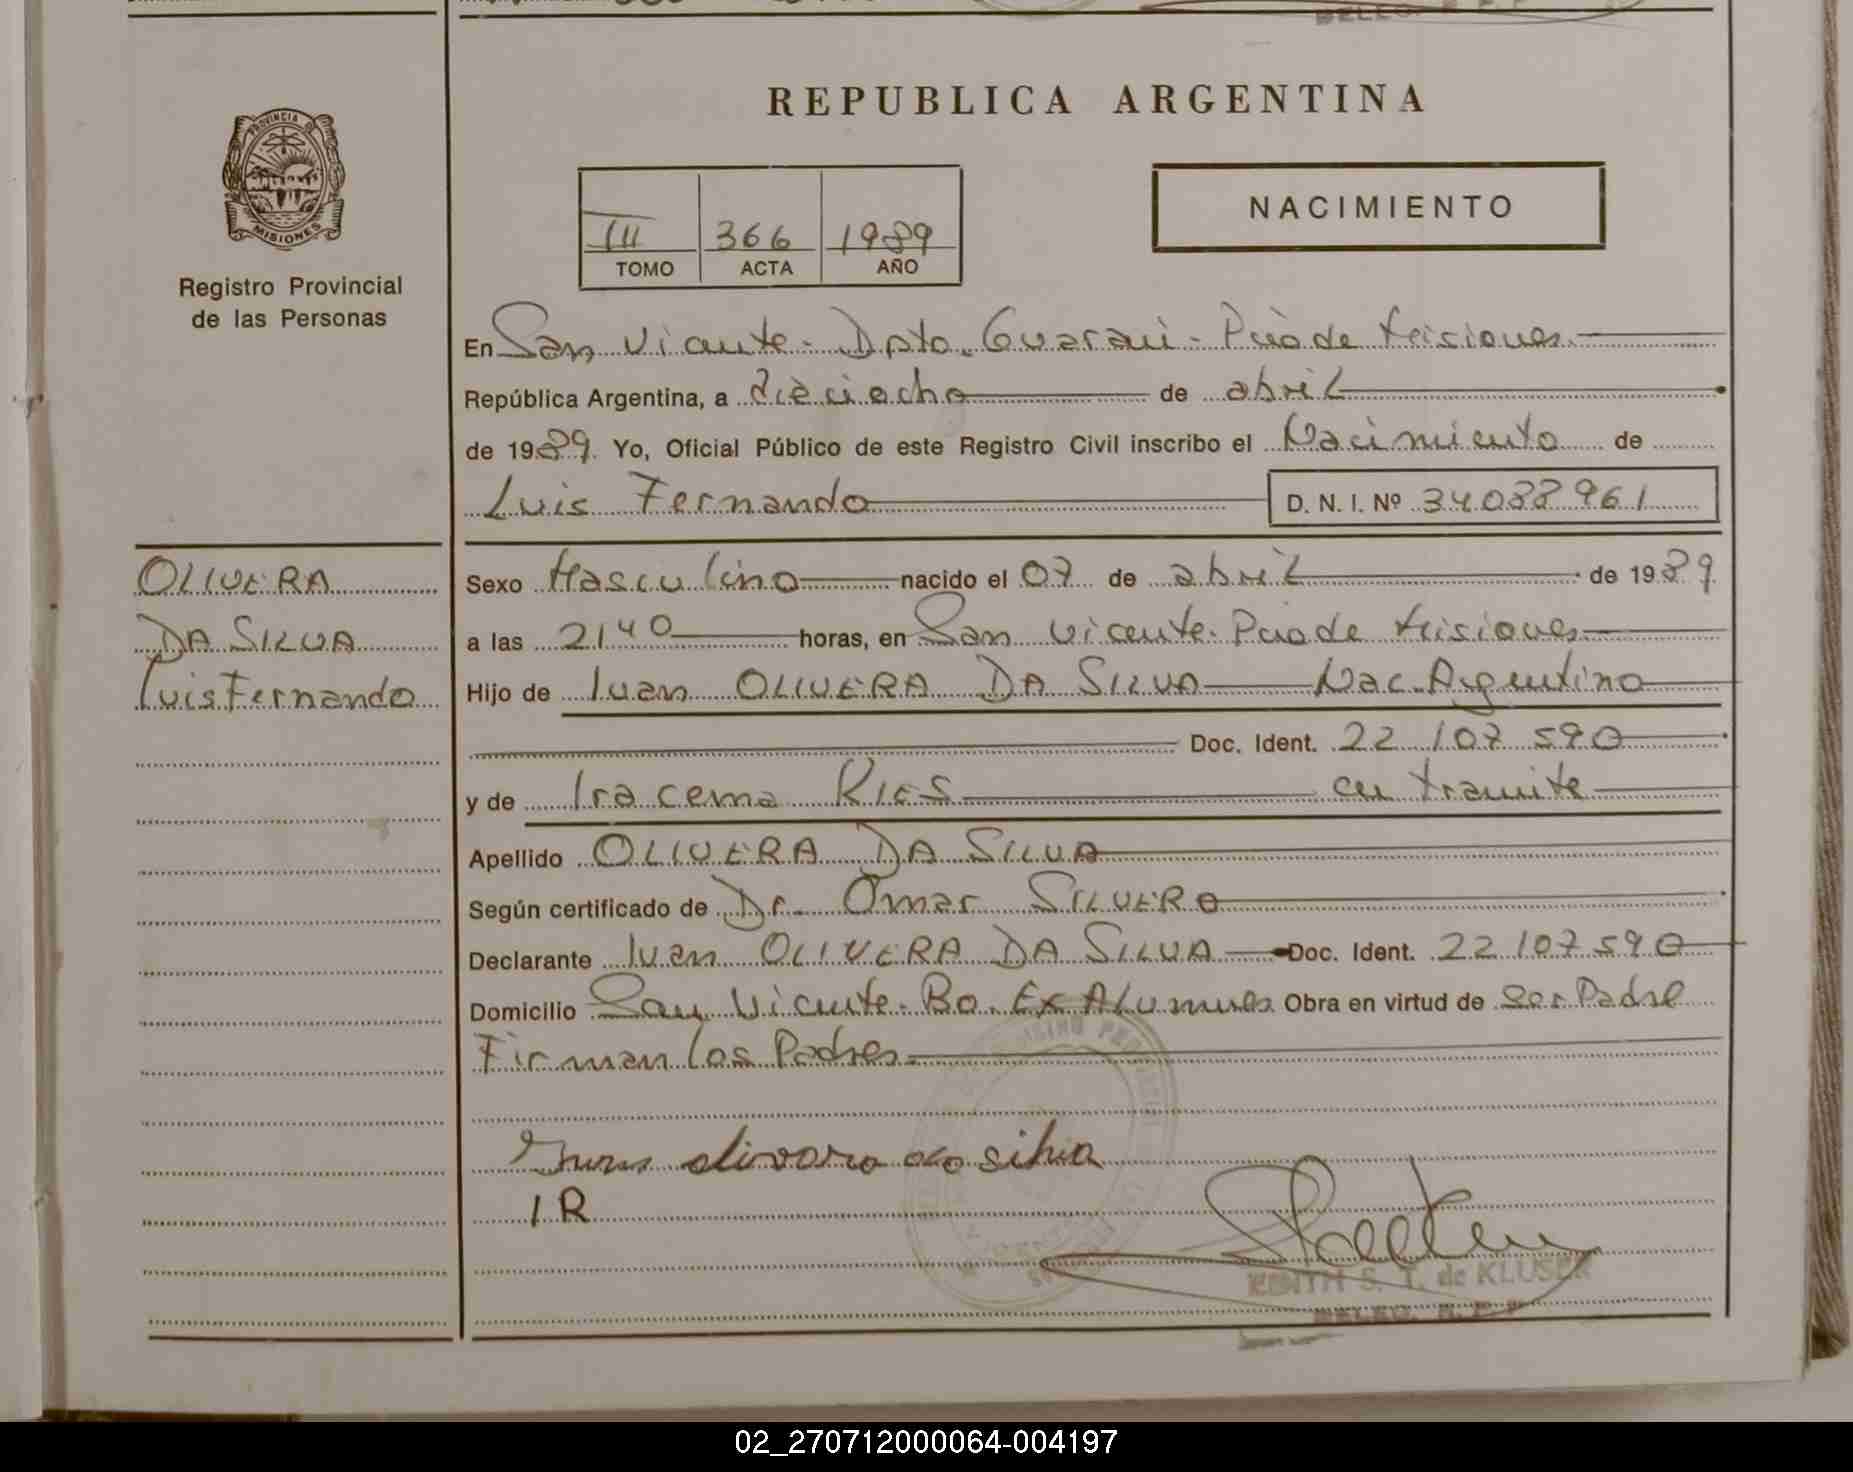 REPUBLICA ARGENTINA
PROVINCIA
MISIONES
Registro Provincial
de las Personas
III 366 1989
TOMO ACTA AÑO
NACIMIENTO
En San Vicente - Dpto. Guaraní - Pcia de Misiones
República Argentina, a dieciocho de abril
de 1989. Yo, Oficial Público de este Registro Civil inscribo el Nacimiento de
Luis Fernando D. N. I. Nº 34088961
OLIVERA
DA SILVA
Luis Fernando
Sexo Masculino nacido el 07 de abril de 1989
a las 21 40 horas, en San Vicente. Pcia de Misiones
Hijo de Juan OLIVERA DA SILVA Nac. Argentino
Doc. Ident. 22 107 590
y de Iracema RIES en tramite
Apellido OLIVERA DA SILVA
Según certificado de Dr. Omar SILVERO
Declarante Juan OLIVERA DA SILVA Doc. Ident. 22 107 590
Domicilio San Vicente. Bo. Ex Alumnos Obra en virtud de ser Padre
Firman los Padres
I R
EDITH S. T. de KLUSER
DELEG. R. P. P.
02_270712000064-004197